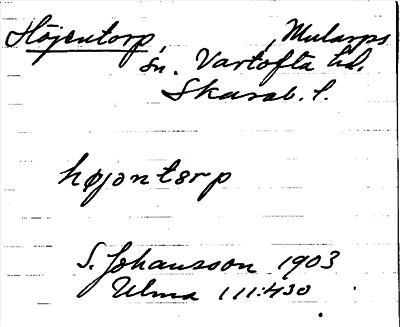 Höjentorp, Mularps
sn. Vartofta hd.
Skarab. l.
højontərp
S. Johansson 1903
Ulma 111:430